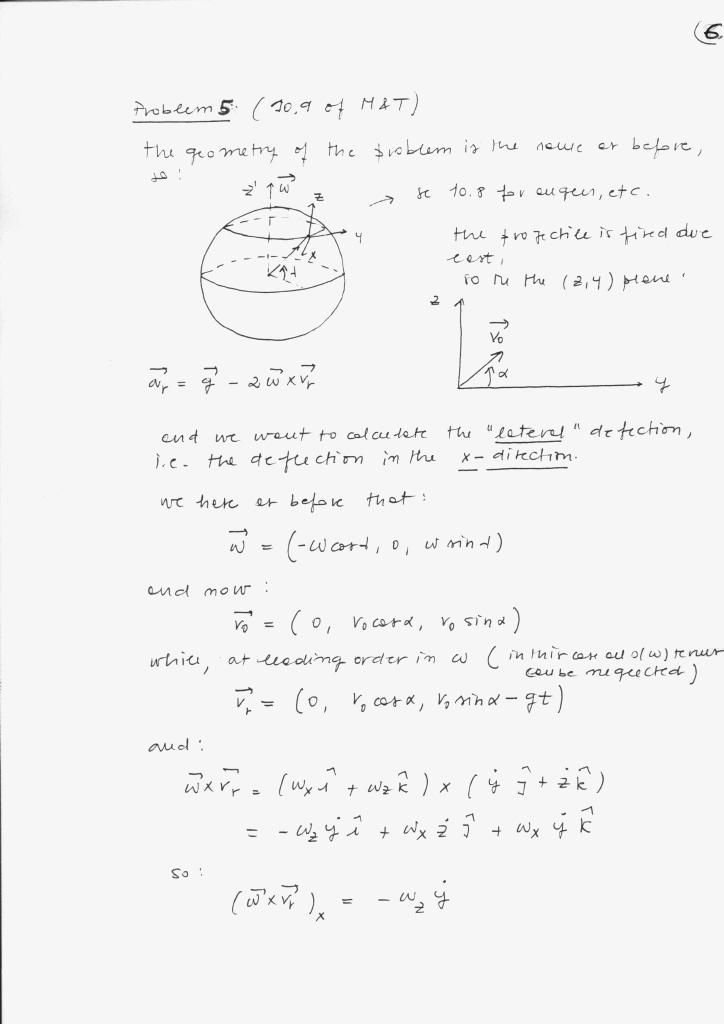 6
Problem 5. (10.9 of M&T)
the geometry of the problem is the same as before,
so :
z' ω⃗ z
→ see 10.8 for angles, etc.
y
x
λ
the projectile is fired due
east,
so in the (z,y) plane :
z
v⃗₀
α
y
a⃗ᵣ = g⃗ - 2 ω⃗ x v⃗ᵣ
and we want to calculate the "lateral" defection,
i.e. the deflection in the x-direction.
we have as before that :
ω⃗ = (-ω cosλ, 0, ω sinλ)
and now :
v⃗₀ = (0, v₀ cosα, v₀ sinα)
while, at leading order in ω (in this case all o(ω) terms
can be neglected)
v⃗ᵣ = (0, v₀ cosα, v₀ sinα - gt)
and :
ω⃗ x v⃗ᵣ = (ωₓ î + ω_z k̂) x (ẏ ĵ + ż k̂)
= - ω_z ẏ î + ωₓ ż ĵ + ωₓ ẏ k̂
so :
(ω⃗ x v⃗ᵣ)ₓ = - ω_z ẏ